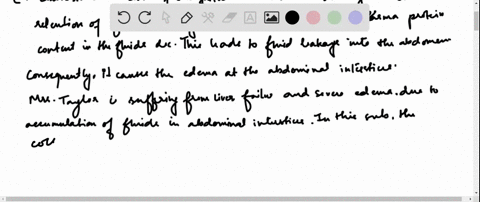 retention of
protein
content in the fluids dec. This leads to fluid leakage into the abdomen
Consequently, it cause the edema at the abdominal intestice.
Mrs. Taylor is suffering from liver failure and severe edema due to
accumulation of fluids in abdominal intestices. In this sub, the
coll